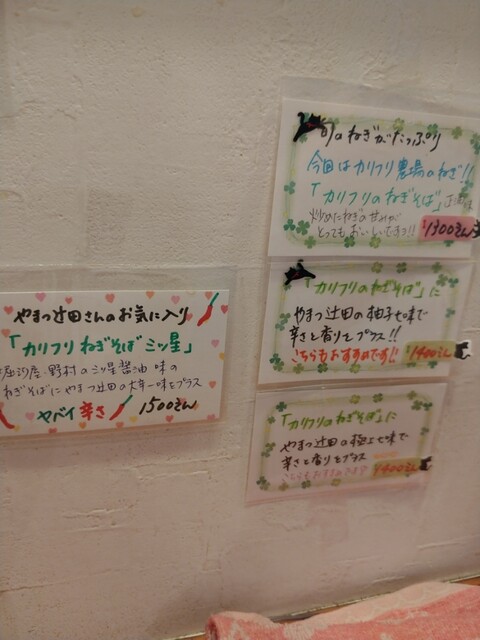 やまつ辻田さんのお気に入り
「カリフリねぎそば三ツ星」
野村の三ツ星醤油味の
ねぎそばにやまつ辻田の大辛一味をプラス
ヤバイ辛さ
1500えん
旬のねぎがたっぷり
今回はカリフリ農場のねぎ!!
「カリフリのねぎそば」
炒めたねぎの甘みが
とってもおいしいですっ!!
1300えん
「カリフリのねぎそば」に
やまつ辻田の柚子七味で
辛さと香りをプラス!!
こちらもおすすめです!!
1400えん
「カリフリのねぎそば」に
やまつ辻田の極上七味で
辛さと香りをプラス
こちらもおすすめです
1400えん